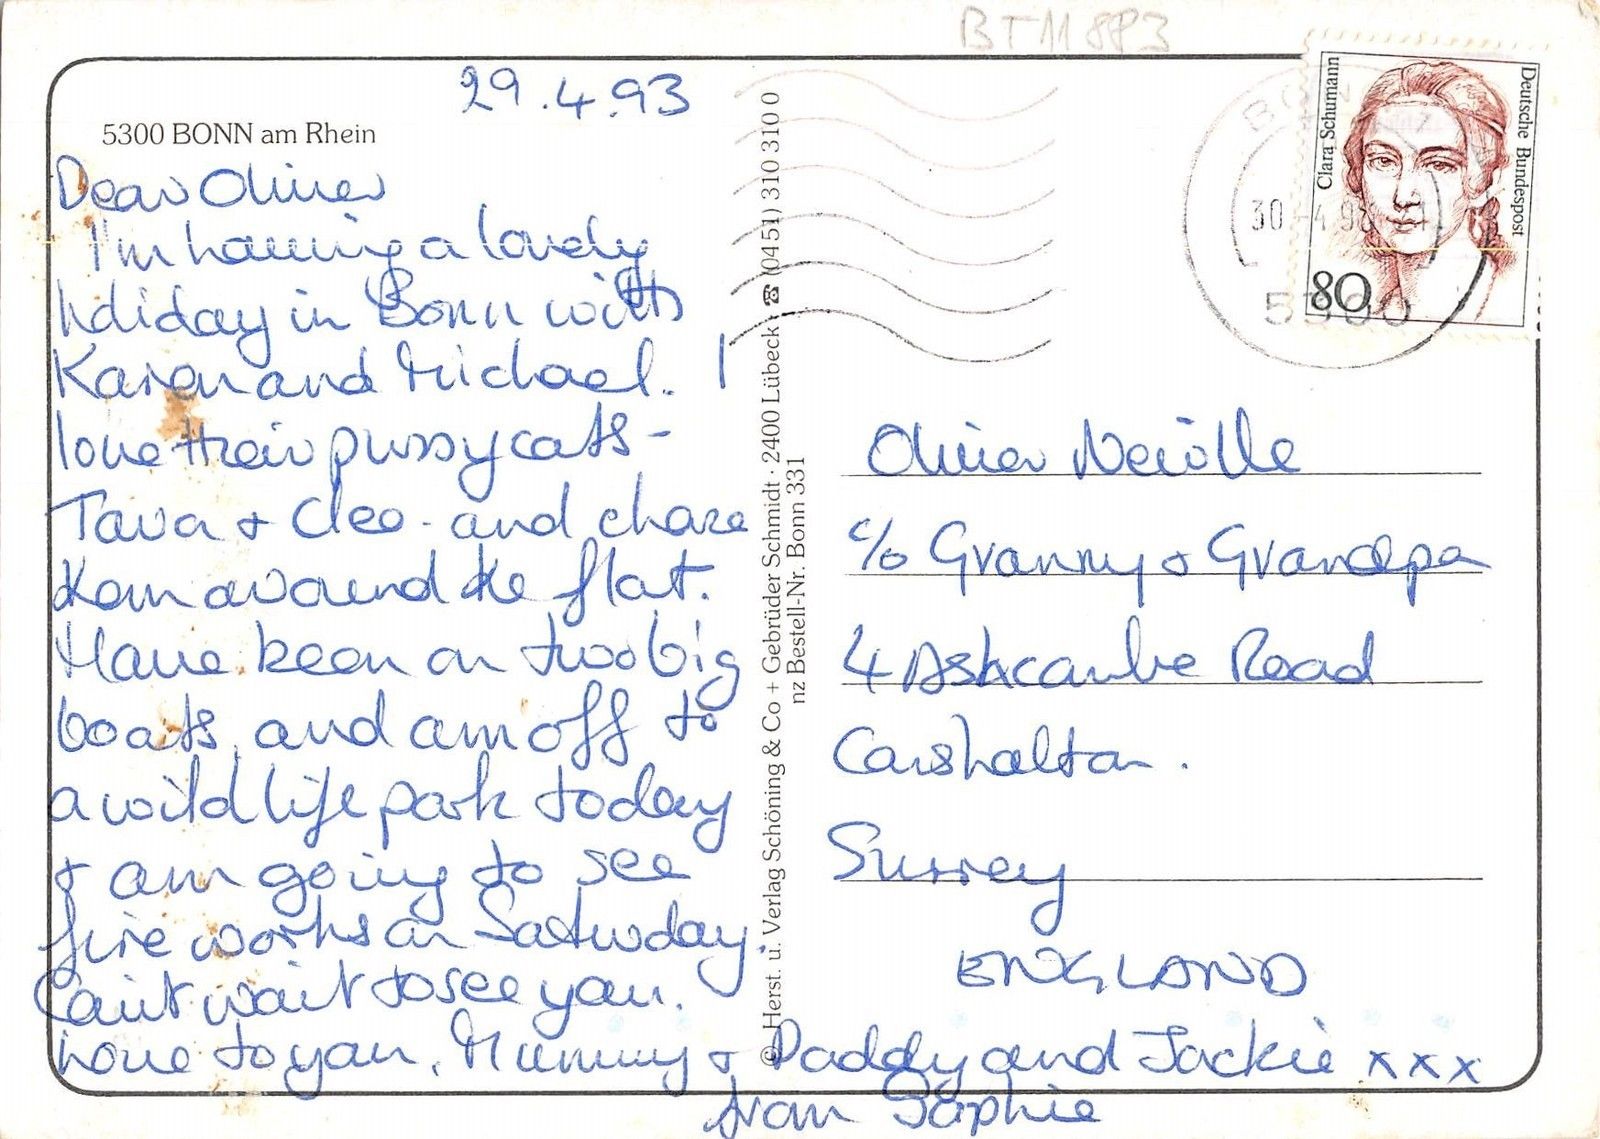 BT11883
29.4.93
5300 BONN am Rhein
Dear Oliver
I'm having a lovely
holiday in Bonn with
Karen and Michael. I
love their pussycats -
Tava + Cleo - and chase
them around the flat.
Have been on two big
boats, and am off to
a wild life park today
+ am going to see
fire works on Saturday
Can't wait to see you.
Love to you, Mummy + Daddy and Jackie xxx
from Sophie
© Herst. u. Verlag Schöning & Co + Gebrüder Schmidt · 2400 Lübeck · ☎ (0451) 310 310 0
nz Bestell-Nr. Bonn 331
Clara Schumann
Deutsche Bundespost
80
BONN
30.-4.93
5300
Oliver Neville
c/o Granny & Grandpa
4 Ashcombe Road
Carshalton.
Surrey
ENGLAND